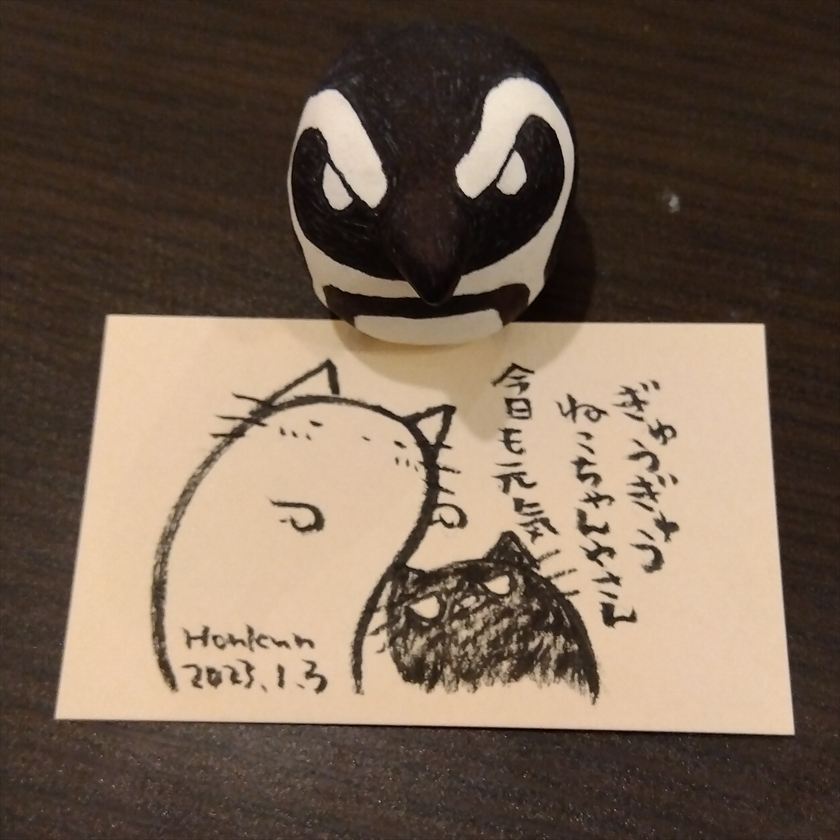 ぎゅうぎゅう
ねこちゃんやさん
今日も元気
Honkun
2023.1.3